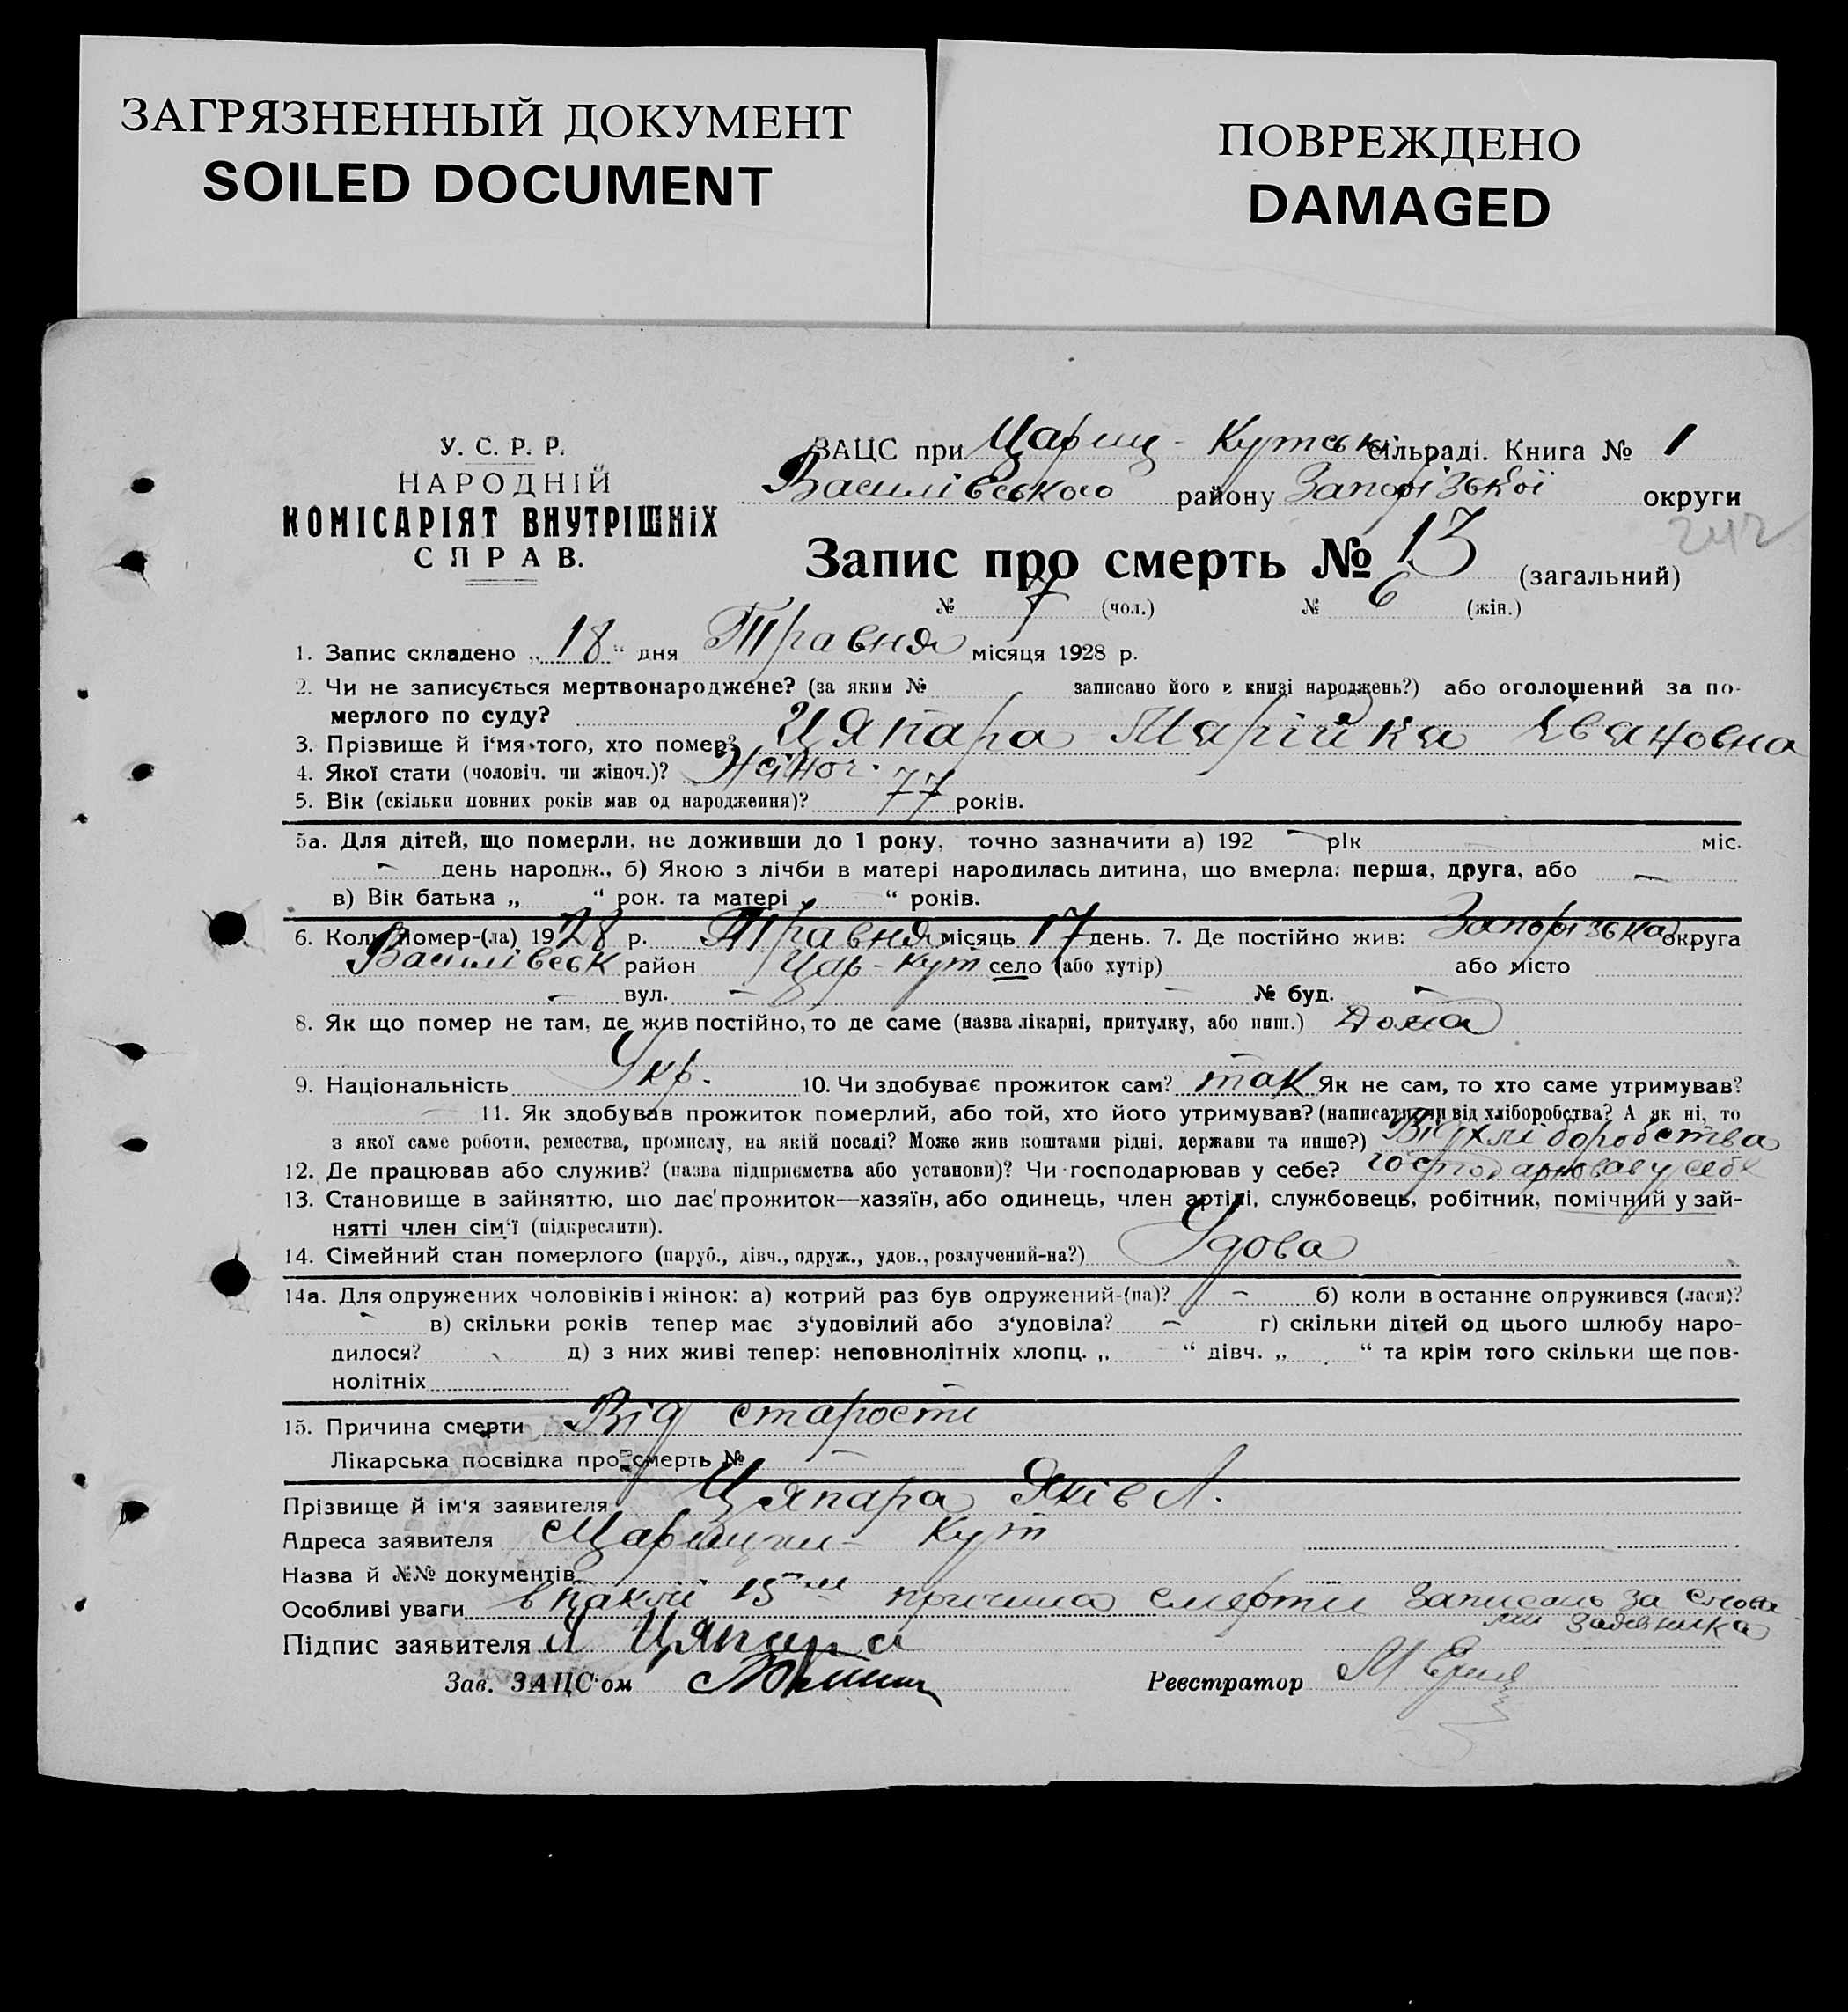 ЗАГРЯЗНЕННЫЙ ДОКУМЕНТ
SOILED DOCUMENT
ПОВРЕЖДЕНО
DAMAGED
У. С. Р. Р.
НАРОДНІЙ
КОМІСАРІЯТ ВНУТРІШНІХ
СПРАВ.
ЗАЦС при Цариц - Кутськ сільраді. Книга № 1
Василівського району Запорізської округи
242
Запис про смерть № 13 (загальний)
№ 7 (чол.) № 6 (жін.)
1. Запис складено „ 18 “ дня Травня місяця 1928 р.
2. Чи не записується мертвонароджене? (за яким № записано його в книзі народжень?) або оголошений за по-
мерлого по суду?
3. Прізвище й і'мя того, хто помер? Цяпара Марійка Івановна
4. Якої стати (чоловіч. чи жіноч.)? Жіноч.
5. Вік (скільки повних років мав од народження)? 77 років.
5а. Для дітей, що померли, не доживши до 1 року, точно зазначити а) 192 – рік міс.
– день народж., б) Якою з лічби в матері народилась дитина, що вмерла: перша, друга, або –
в) Вік батька „ “ рок. та матері „ “ років.
6. Коли помер-(ла) 1928 р. Травня місяць 17 день. 7. Де постійно жив: Запорізська округа
Василівськ район Цар - Кут село (або хутір) або місто
– вул. – – № буд. –
8. Як що помер не там, де жив постійно, то де саме (назва лікарні, притулку, або инш.) Дома
9. Національність Укр. 10. Чи здобуває прожиток сам? так Як не сам, то хто саме утримував?
– 11. Як здобував прожиток померлий, або той, хто його утримував? (написати чи від хліборобства? А як ні, то
з якої саме роботи, ремества, промислу, на якій посаді? Може жив коштами рідні, держави та инше?) Від хліборобства
12. Де працював або служив? (назва підприємства або установи)? Чи господарював у себе? господарював у себе
13. Становище в зайняттю, що дає прожиток—хазяїн, або одинець, член артілі, службовець, робітник, помічний у зай-
нятті член сім'ї (підкреслити).
14. Сімейний стан померлого (паруб., дівч., одруж., удов., розлучений-на?) Удова
14а. Для одружених чоловіків і жінок: а) котрий раз був одружений-(на)? – б) коли востаннє одружився (лася)?
– в) скільки років тепер має з'удовілий або з'удовіла? – г) скільки дітей од цього шлюбу наро-
дилося? д) з них живі тепер: неповнолітніх хлопц. „ “ дівч. „ “ та крім того скільки ще пов-
нолітніх –
15. Причина смерти Від старости
Лікарська посвідка про смерть № –
Прізвище й ім'я заявителя Цяпара Яків Л.
Адреса заявителя Царицин - Кут
Назва й №№ документів
Особливі уваги 15 причина смерти записано за слова-
ми заявника
Підпис заявителя Я Цяпара
Зав. ЗАЦС'ом Реєстратор